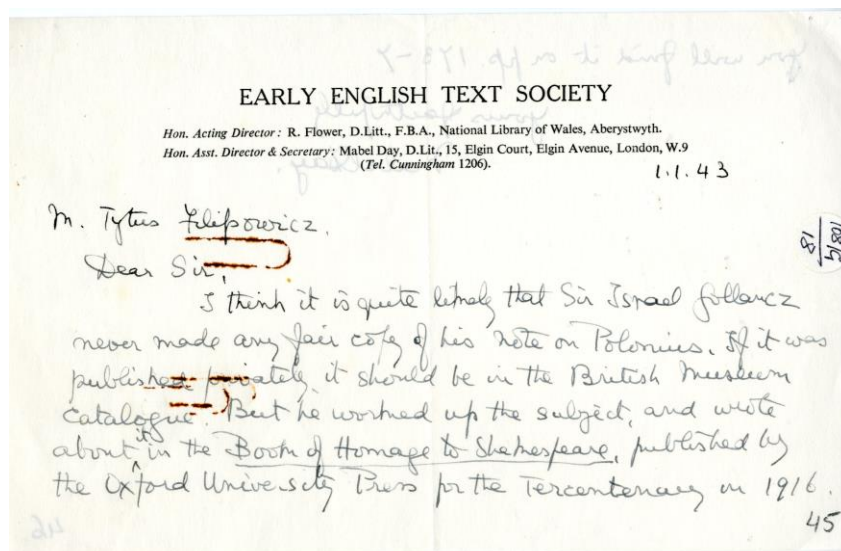 EARLY ENGLISH TEXT SOCIETY
Hon. Acting Director: R. Flower, D.Litt., F.B.A., National Library of Wales, Aberystwyth.
Hon. Asst. Director & Secretary: Mabel Day, D.Lit., 15, Elgin Court, Elgin Avenue, London, W.9
(Tel. Cunningham 1206).
1.1.43
M. Tytus Filipowicz.
Dear Sir,
I think it is quite likely that Sir Israel Gollancz
never made any fair copy of his note on Polonius. If it was
published privately it should be in the British Museum
catalogue. But he worked up the subject, and wrote
about it in the Book of Homage to Shakespeare, published by
the Oxford University Press for the Tercentenary in 1916.
45